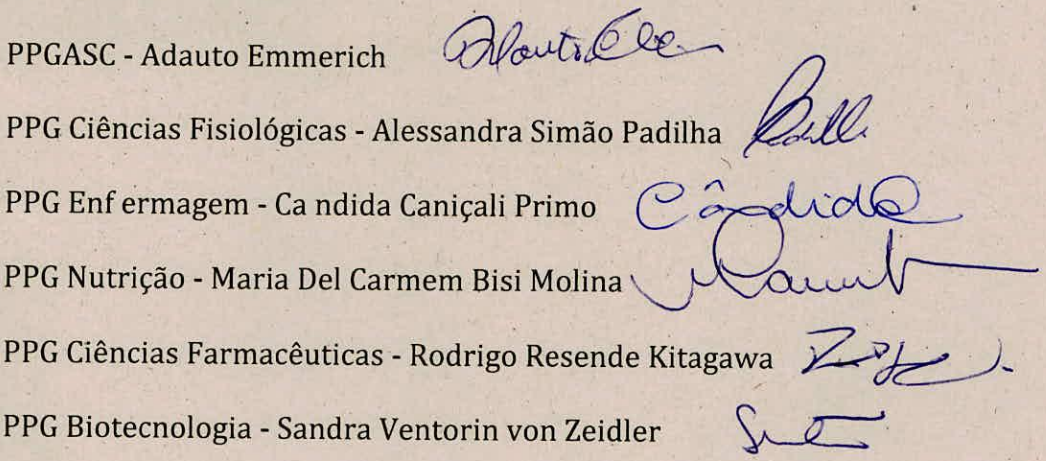 PPGASC - Adauto Emmerich
PPG Ciências Fisiológicas - Alessandra Simão Padilha
PPG Enf ermagem - Ca ndida Caniçali Primo Cândida
PPG Nutrição - Maria Del Carmem Bisi Molina
PPG Ciências Farmacêuticas - Rodrigo Resende Kitagawa
PPG Biotecnologia - Sandra Ventorin von Zeidler